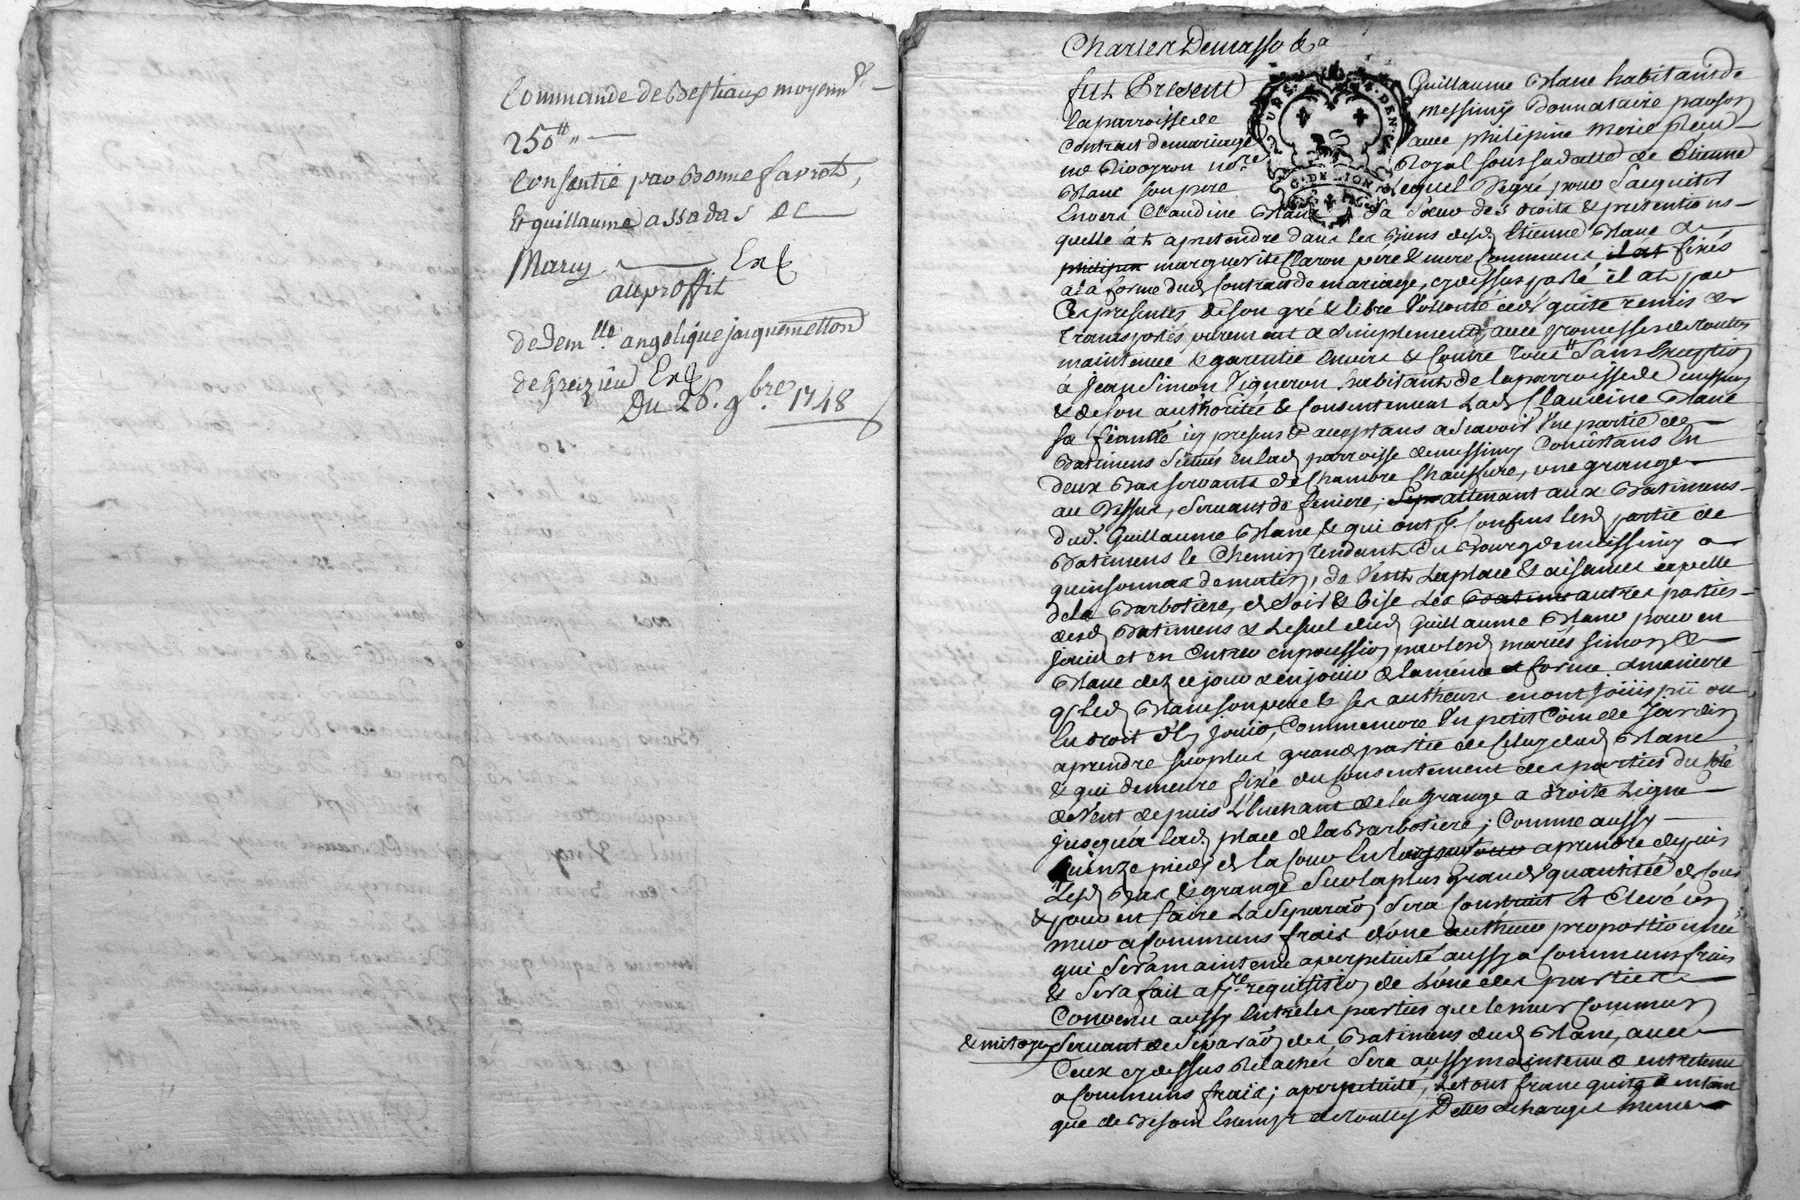 Commande de Bestiaux moyennt
250 ᵗᵗ
Consentie par Bonne Favrot,
& guillaume assadas de
Marcy Exp
au proffit
de demlle angelique jacquemetton
de Greizieu Exp
Du 26. 9bre. 1748
Charles Demasso &a
fut Present Guillaume Blanc habitant de
la parroisse de messimy Donnataire par son
contrat de mariage avec philipine
me Royal soussa datte de Etienne
Blanc son pere Lequel Degré pour Sacquiter
Envers Claudine Blanc Sa Sœur des droits & pretentions
quelle at a pretendre dans les Biens desd Etienne Blanc &
marguerite Claron pere & mere Communs, fixés
a la forme dud Contrat de mariage, cy dessus datté il at par
Ces presentes de son gré & libre Vollonté cedé quité remis &
transportés purement & simplement, avec promesses de toutes
maintenue & garentie Envers & Contre tous Sans Exception
à Jean Simon Vigneron habitant de la parroisse de messimy
& de son authorité & Consentement Lad Claudine Blanc
sa fiancée icy presens & acceptans a Scavoir Une partie de
Batimens Situés en lad parroisse de messimy Consistans En
deux Bas servants de Chambre Chauffure, une grange
au Dessus, Servant de feniere, attenant aux Batimens
dud. Guillaume Blanc & qui ont pr Confins lesd partie de
Batimens le Chemin tendant du Bourg de messimy a
quinsonnas de matin, de Vent La place & aisances appellé
de la Barbotiere, & Soir & Bise les autres parties
desd Batimens & dud Guillaume Blanc pour en
jouir et en Entrer en possession par lesd mariés Simon &
Blanc dez ce jour & en jouir de la même forme & maniere
q led Blanc son pere & ses autheurs en ont joüis pü ou
Eu droit d'En jouir, Comme encore Un petit Coin de Jardin
a prendre sur plus grande partie de Celuy dud Blanc
& qui demeure fixé du Consentement des parties du Coté
de Vent depuis L'Enchant de la grange a droite Ligne
jusqu'a lad place de la Barbotiere; Comme aussy
quinze pieds de la Cour a prendre depuis
Lesd Bas & grange Sur la plus grande quantitée de Cour
& pour en faire La Separaon Sera Construit & Elevé un
mur a Communs frais d'une autheur proportionnée
qui Sera maintenu a perpetuité aussy a Communs frais
& Sera fait a pre requisition de L'une des parties
Convenu aussy Entre les parties que le mur Commun
& mitoyen Servant de Separaon des Batimens dud Blanc, avec
Ceux cy dessus Relachés Sera aussy maintenu & entretenu
a Communs frais; a perpetuité, Le tout franc quitte &
que de Besoin Exempt de toutes Dettes & charges même